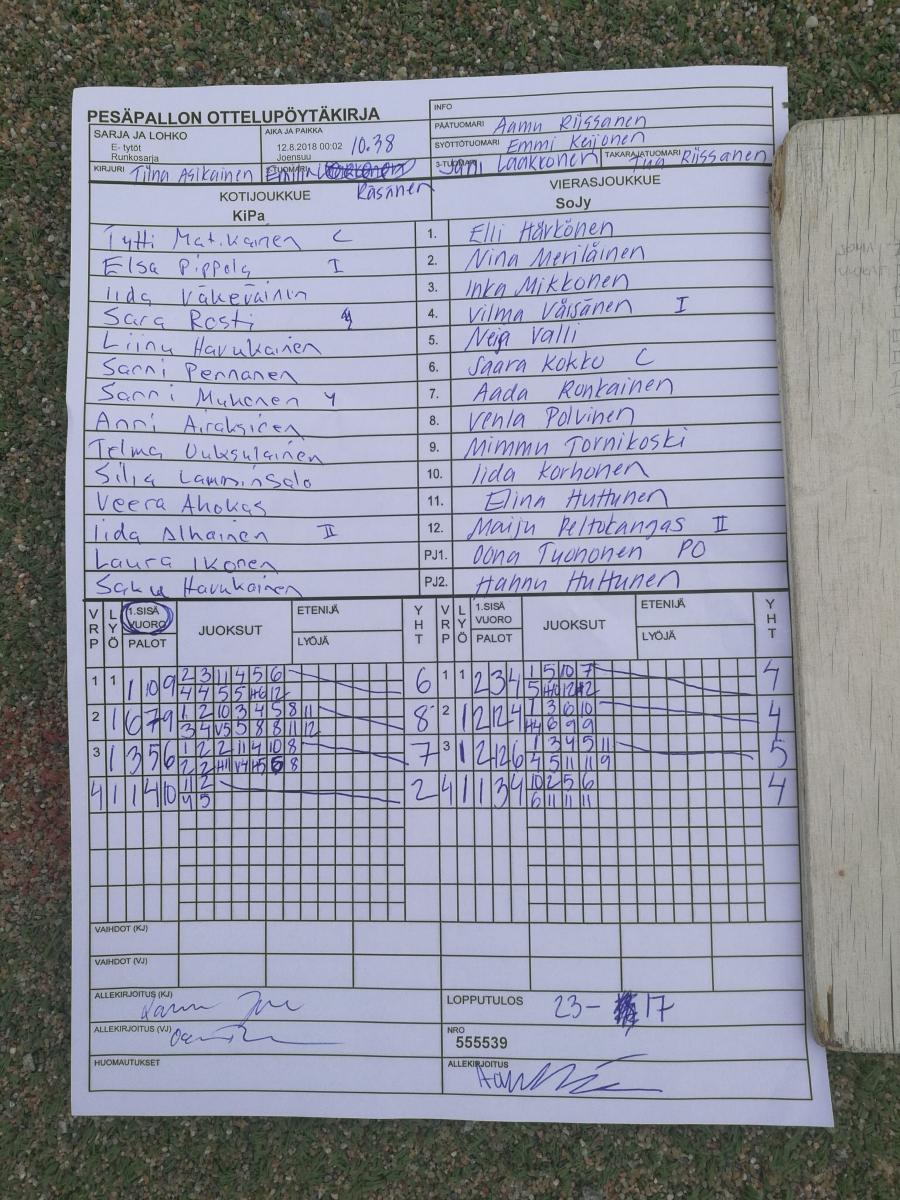 PESÄPALLON OTTELUPÖYTÄKIRJA
INFO
SARJA JA LOHKO
E- tytöt
Runkosarja
AIKA JA PAIKKA
12.8.2018 00:02 10.38
Joensuu
PÄÄTUOMARI Aamu Riissanen
SYÖTTÖTUOMARI Emmi Keijonen
KIRJURI Tiina Asikainen
2-TUOMARI Räsänen
3-TUOMARI Jani Laakkonen
TAKARAJATUOMARI Riissanen
KOTIJOUKKUE
KiPa
VIERASJOUKKUE
SoJy
Tytti Matikainen C 1. Elli Härkönen
Elsa Pippola I 2. Nina Meriläinen
Iida Väkeväinin 3. Inka Mikkonen
Sara Rosti 4. Vilma Väisänen I
Liinu Havukainen 5. Neia Valli
Sanni Pennanen 6. Saara Kokko C
Sanni Muhonen 4 7. Aada Ronkainen
Anni Airaksinen 8. Venla Polvinen
Telma Ouksulainen 9. Mimmu Tornikoski
Silja Lamminsalo 10. Iida Korhonen
Veera Ahokas 11. Elina Huttunen
Iida Alhainen II 12. Maiju Peltokangas II
Laura Ikonen PJ1. Oona Tuononen PO
Saku Havukainen PJ2. Hannu Huttunen
VRP LYÖ 1.SISÄ VUORO PALOT JUOKSUT ETENIJÄ LYÖJÄ YHT VRP LYÖ 1.SISÄ VUORO PALOT JUOKSUT ETENIJÄ LYÖJÄ YHT
1 1 1 10 9 2 3 11 4 5 6 6 1 1 2 3 4 1 5 10 7 4
4 4 5 5 H6 12 5 H10 12 H2
2 1 6 7 9 1 2 10 3 4 5 8 11 8 2 1 2 12 4 1 3 6 10 4
3 4 V5 5 8 8 11 12 H4 6 9 9
3 1 3 5 6 1 2 2 11 4 10 8 7 3 1 2 12 6 1 3 4 5 11 5
2 2 H1 V4 H5 6 8 4 5 11 11 9
4 1 1 4 10 11 2 2 4 1 1 3 4 10 2 5 6 4
4 5 6 11 11 11
VAIHDOT (KJ)
VAIHDOT (VJ)
ALLEKIRJOITUS (KJ)
LOPPUTULOS 23-17
ALLEKIRJOITUS (VJ)
NRO
555539
HUOMAUTUKSET
ALLEKIRJOITUS